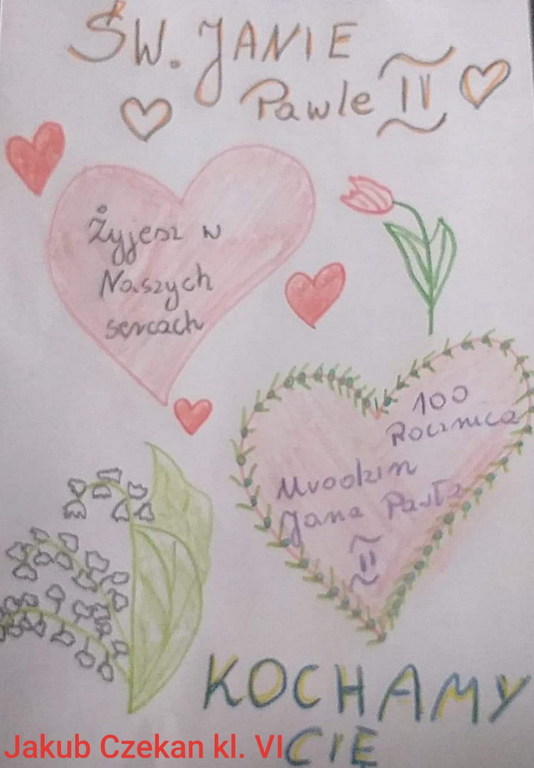 ŚW. JANIE
Pawle II
Żyjesz w
Naszych
sercach
100
Rocznica
Urodzin
Jana Pawła
II
KOCHAMY
CIĘ
Jakub Czekan kl. VI